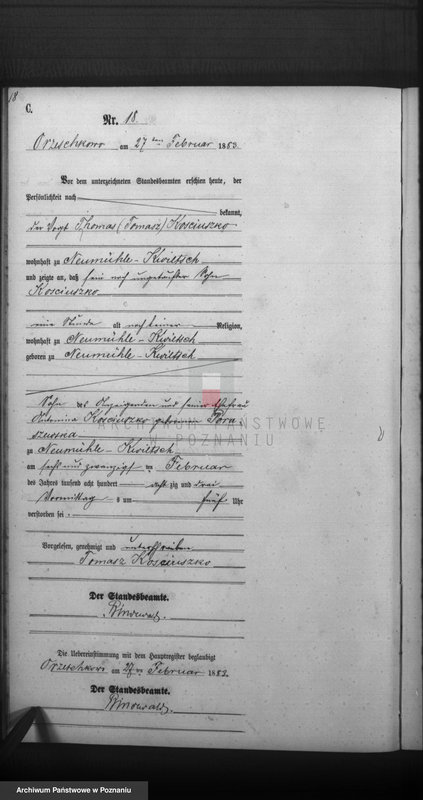 18
C.
Nr. 18
Orzeschkowo am 27ten Februar 1883
Vor dem unterzeichneten Standesbeamten erschien heute, der
Persönlichkeit nach
bekannt,
der Vogt Thomas (Tomasz) Kosciuszko
wohnhaft zu Neumühle-Kwiltsch
und zeigte an, daß sein noch ungetaufter Sohn
Kosciuszko
eine Stunde alt noch keiner Religion,
wohnhaft zu Neumühle-Kwiltsch
geboren zu Neumühle-Kwiltsch
Sohn des Anzeigenden und seiner Ehefrau
Kosciuszko geborenen
zu Neumühle-Kwiltsch
am sechs und zwanzigsten Februar
des Jahres tausend acht hundert acht zig und drei
Vormittag s um fünf Uhr
verstorben sei.
Vorgelesen, genehmigt und unterschrieben
Tomasz Kosciuszko
Der Standesbeamte.
Die Uebereinstimmung mit dem Hauptregister beglaubigt
Orzeschkowo am 27ten Februar 1883.
Der Standesbeamte.
ARCHIWUM PAŃSTWOWE
W POZNANIU
Archiwum Państwowe w Poznaniu